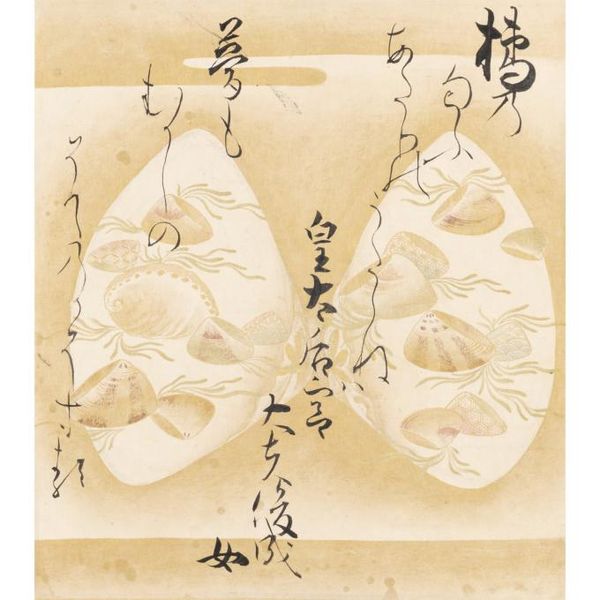 橘乃
匂ふ
あたりのうたゝねは
夢も
むかしの
そてのかそする
皇太后宮
大夫俊成
女